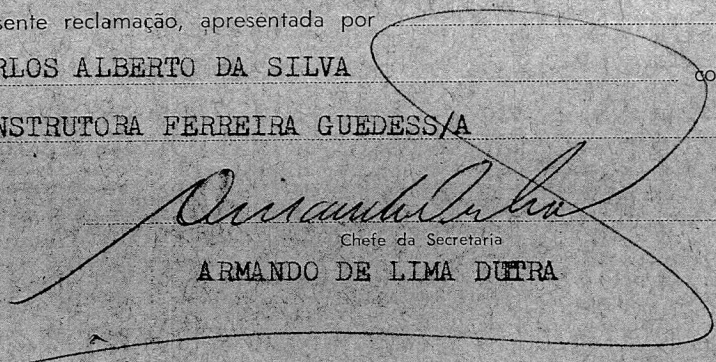 sente reclamação, apresentada por
RLOS ALBERTO DA SILVA co
NSTRUTORA FERREIRA GUEDESS/A
Chefe da Secretaria
ARMANDO DE LIMA DUTRA